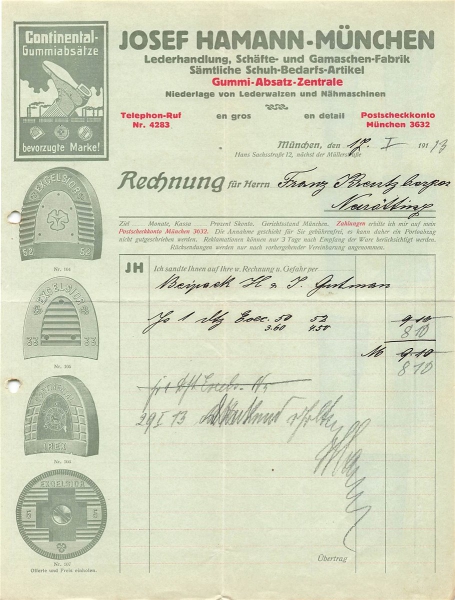 Continental-
Gummiabsätze
bevorzugte Marke!
JOSEF HAMANN-MÜNCHEN
Lederhandlung, Schäfte- und Gamaschen-Fabrik
Sämtliche Schuh-Bedarfs-Artikel
Gummi-Absatz-Zentrale
Niederlage von Lederwalzen und Nähmaschinen
Telephon-Ruf
Nr. 4283
en gros en detail
Postscheckkonto
München 3632
München, den 17. I 1913
Hans Sachsstraße 12, nächst der Müllerstraße
Rechnung für Herrn Franz
Ziel ... Monate, Kassa ... Prozent Skonto. Gerichtsstand München. Zahlungen erbitte ich mir auf mein
Postscheckkonto München 3632. Die Annahme geschieht für Sie gebührenfrei, es kann daher ein Portoabzug
nicht gutgeschrieben werden. Reklamationen können nur 3 Tage nach Empfang der Ware berücksichtigt werden.
Rücksendungen werden nur nach vorhergehender Vereinbarung angenommen.
JH Ich sandte Ihnen auf Ihre w. Rechnung u. Gefahr per
Beipack H & J. Gutman
1 50 52 9.10
3.60 4.50 8 10
M 9.10
8 10
29 I 13
EXCELSIOR
52 52
Nr. 104
EXCELSIOR
33 33
EXCELSIOR
EXCELSIOR
5 5
Offerte und Preis einholen.
Übertrag